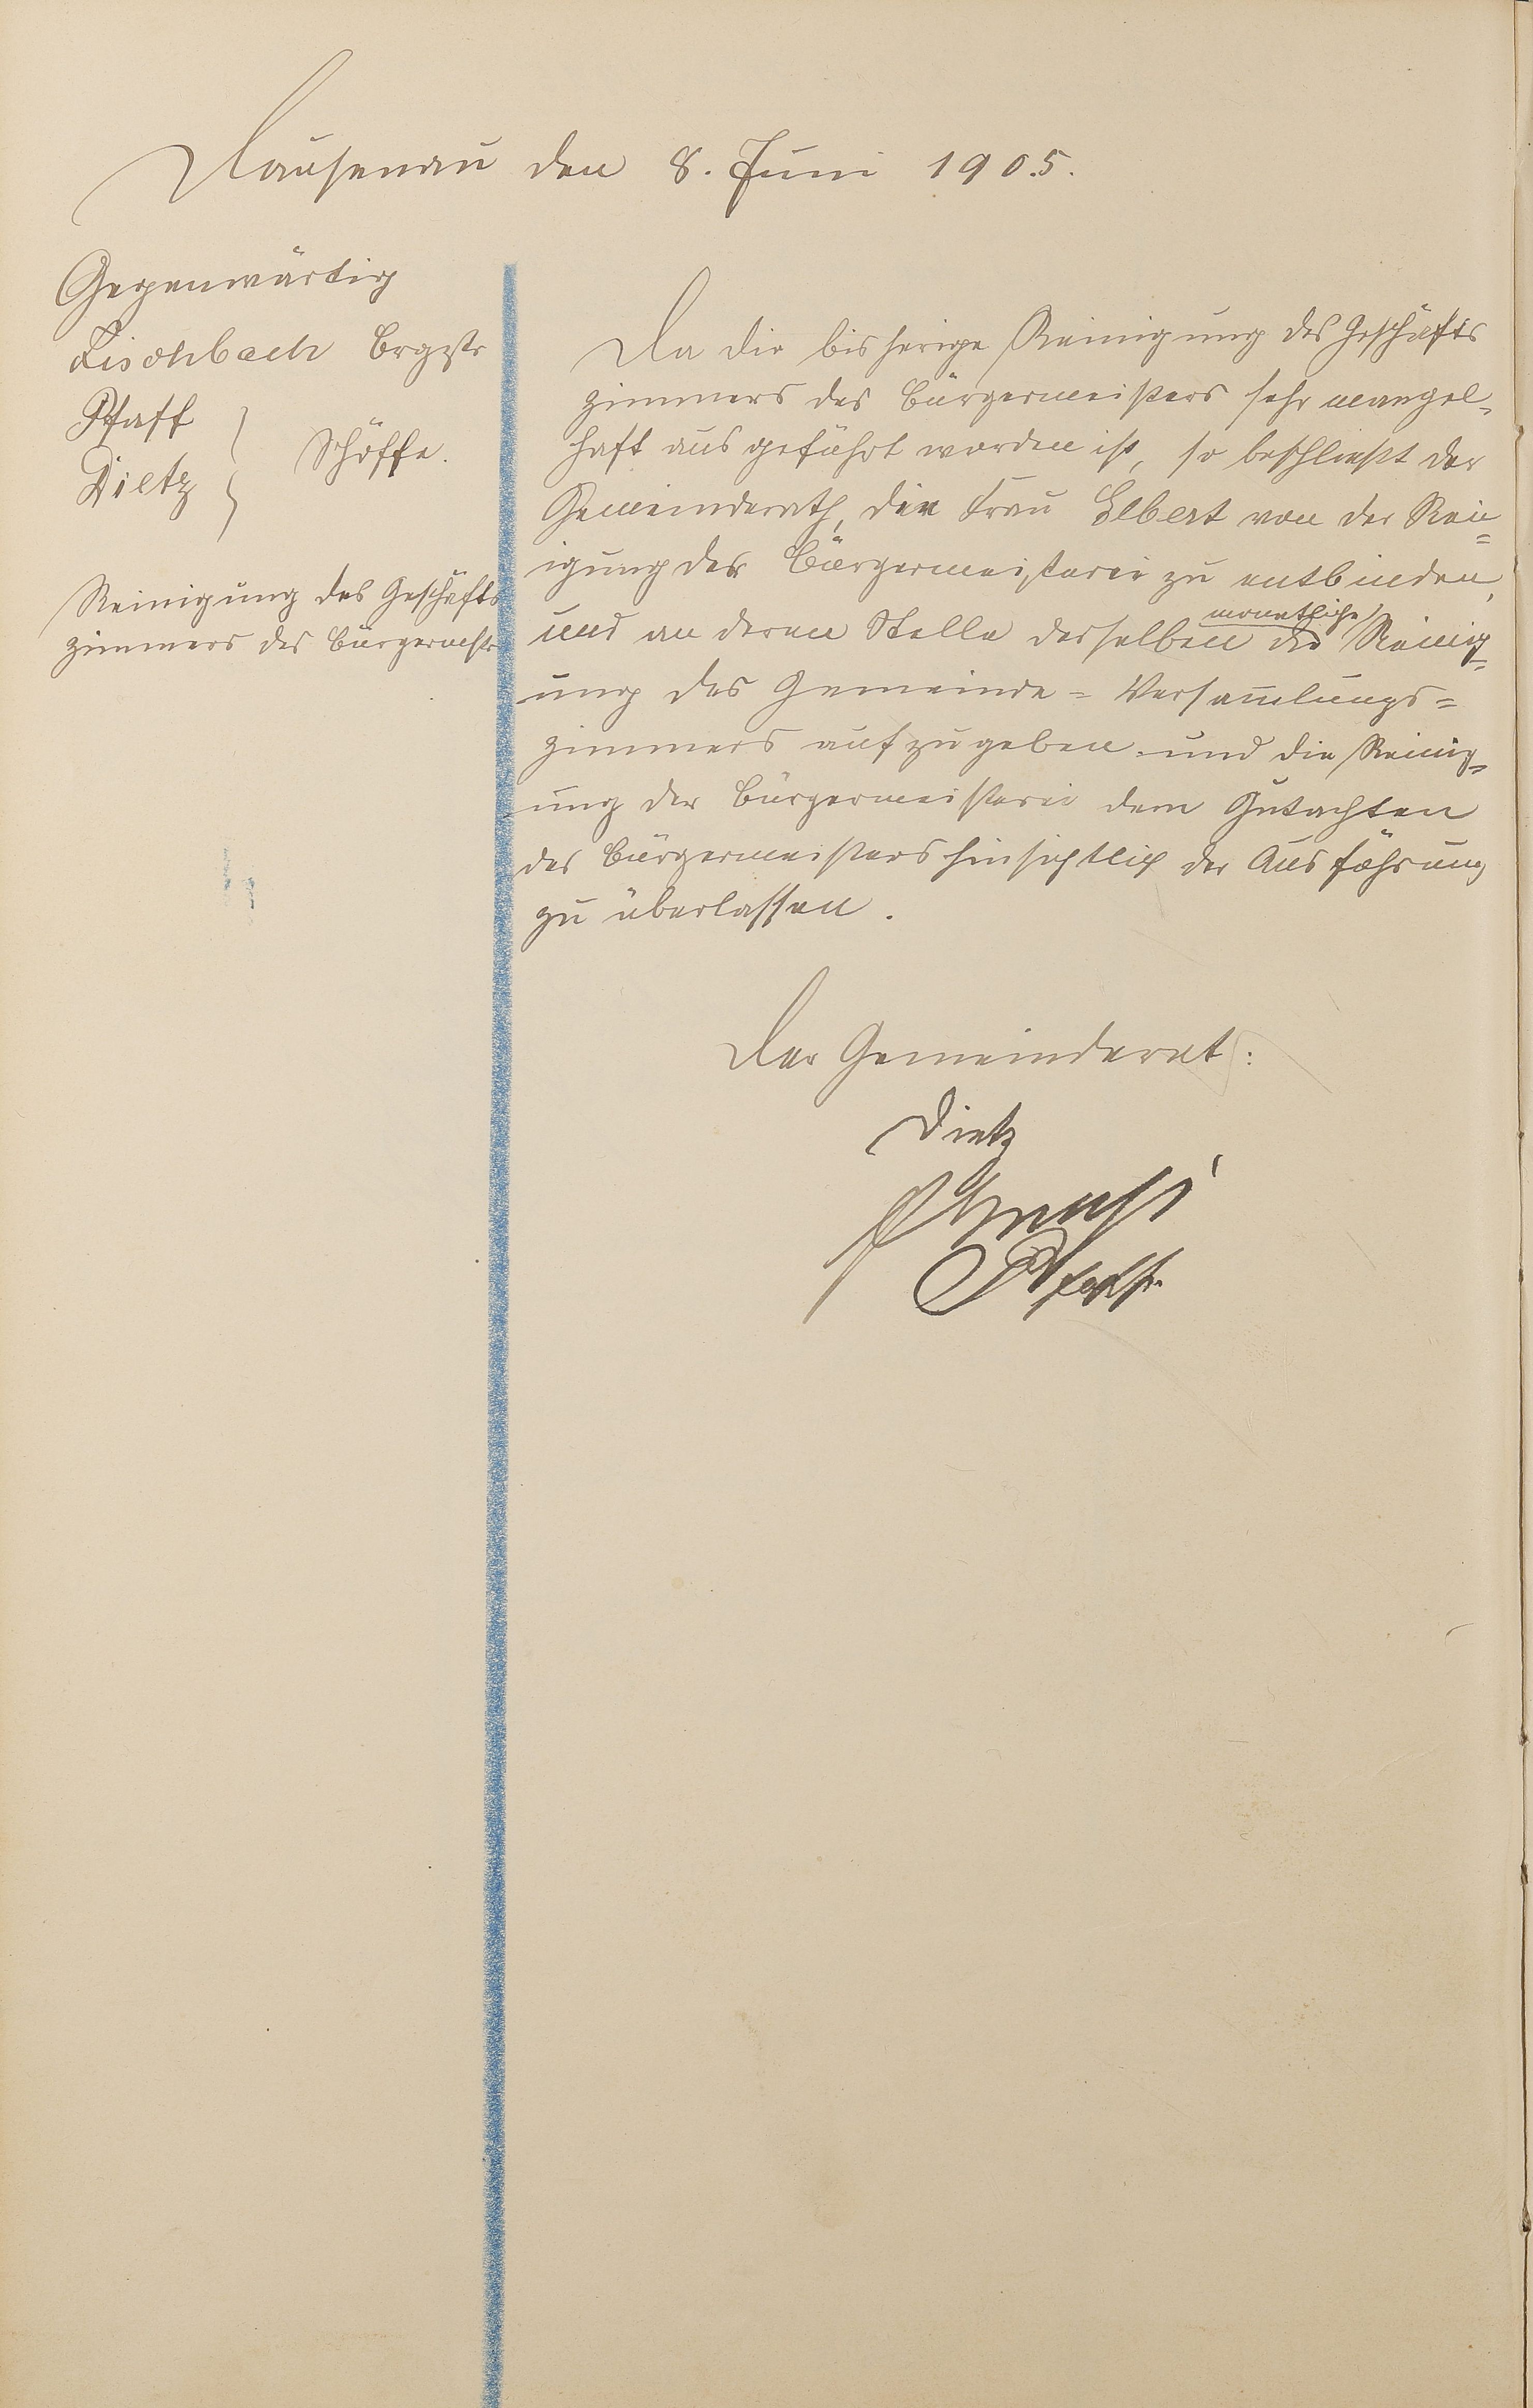 Dausenau den 8. Juni 1905.
Gegenwärtig
Fischbach Brgstr
Pfaff
Dietz
Schöffe.
Reinigung des Geschäfts
zimmers des Bürgermstr
Da die bisherige Reinigung des Geschäfts
zimmers des Bürgermeisters sehr mangel-
haft ausgeführt worden ist, so beschließt der
Gemeinderath, die Frau Elbert von der Rein=
igung der Bürgermeisterei zu entbinden,
monatliche
und an deren Stelle derselben die Reinig=
ung des Gemeinde=Versammlungs=
zimmers aufzugeben und die Reinig=
ung der Bürgermeisterei dem Gutachten
des Bürgermeisters hinsichtlich der Ausführung
zu überlassen.
Der Gemeinderat:
Dietz
Pfaff